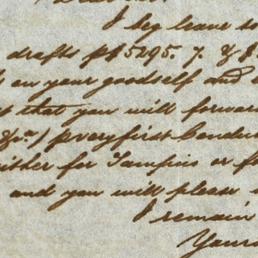 I beg leave to
drafts p $ 5295. 7. &
on your goodself and
that you will forward
& co.) p very first
either for Tampico or
and you will please
I remain
Yours